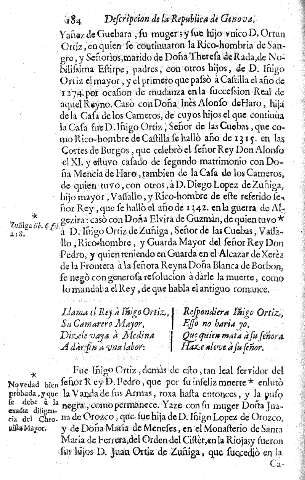 184 Descripcion de la Republica de Genova,
Yañez de Guebara, su muger; y fue hijo vnico D. Ortun
Ortiz, en quien se continuaron la Rico-hombria de San-
gre, y Señorios, marido de Doña Teresa de Rada, de No-
bilissima Estirpe, padres, con otros hijos, de D. Iñigo
Ortiz el mayor, y el primero que passò à Castilla el año de
1274. por ocasion de mudanza en la succession Real de
aquel Reyno. Casò con Doña Inès Alonso de Haro, hija
de la Casa de los Cameros, de cuyos hijos el que continuò
la Casa fue D. Iñigo Ortiz, Señor de las Cuebas, que co-
mo Rico-hombre de Castilla se hallò año de 1315. en las
Cortes de Burgos, que celebrò el señor Rey Don Alonso
el XI. y estuvo casado de segundo matrimonio con Do-
ña Mencia de Haro, tambien de la Casa de los Cameros,
de quien tuvo, con otros, à D. Diego Lopez de Zuñiga,
hijo mayor, Vassallo, y Rico-hombre de este referido se-
ñor Rey, que se hallò el año de 1342. en la guerra de Al-
gezira: casò con Doña Elvira de Guzmán, de quien tuvo *
à D. Iñigo Ortiz de Zuñiga, Señor de las Cuebas, Vassa-
llo, Rico-hombre, y Guarda Mayor del señor Rey Don
Pedro, y quien teniendo en Guarda en el Alcazar de Xerèz
de la Frontera à la señora Reyna Doña Blanca de Borbon,
se negò con generosa resolucion à darle la muerte, como
lo mandaba el Rey, de que habla el antiguo romance.
*
Zuñiga lib. 6. fol.
218.
Llama el Rey à Iñigo Ortiz,
Su Camarero Mayor,
Dizele vaya à Medina
A dàr fin à vna labor.
Respondiera Iñigo Ortiz,
Esso no haria yo,
Que quien mata à su señora
Haze aleve à su señor.
Fue Iñigo Ortiz, demàs de esto, tan leal servidor del
señor Rey D. Pedro, que por su infeliz muerte * enlutò
la Vanda de sus Armas, roxa hasta entonces, y la puso
negra, como permanece. Yaze con su muger Doña Jua-
na de Orozco, que fue hija de D. Iñigo Lopez de Orozco,
y de Doña Maria de Meneses, en el Monasterio de Santa
Maria de Herrera, del Orden del Cistèr, en la Rioja; y fueron
sus hijos D. Juan Ortiz de Zuñiga, que sucediò en la
*
Novedad bien
probada, y que
se debe à la
exacta diligen-
cia del Chro-
nista Mayor.
Ca-